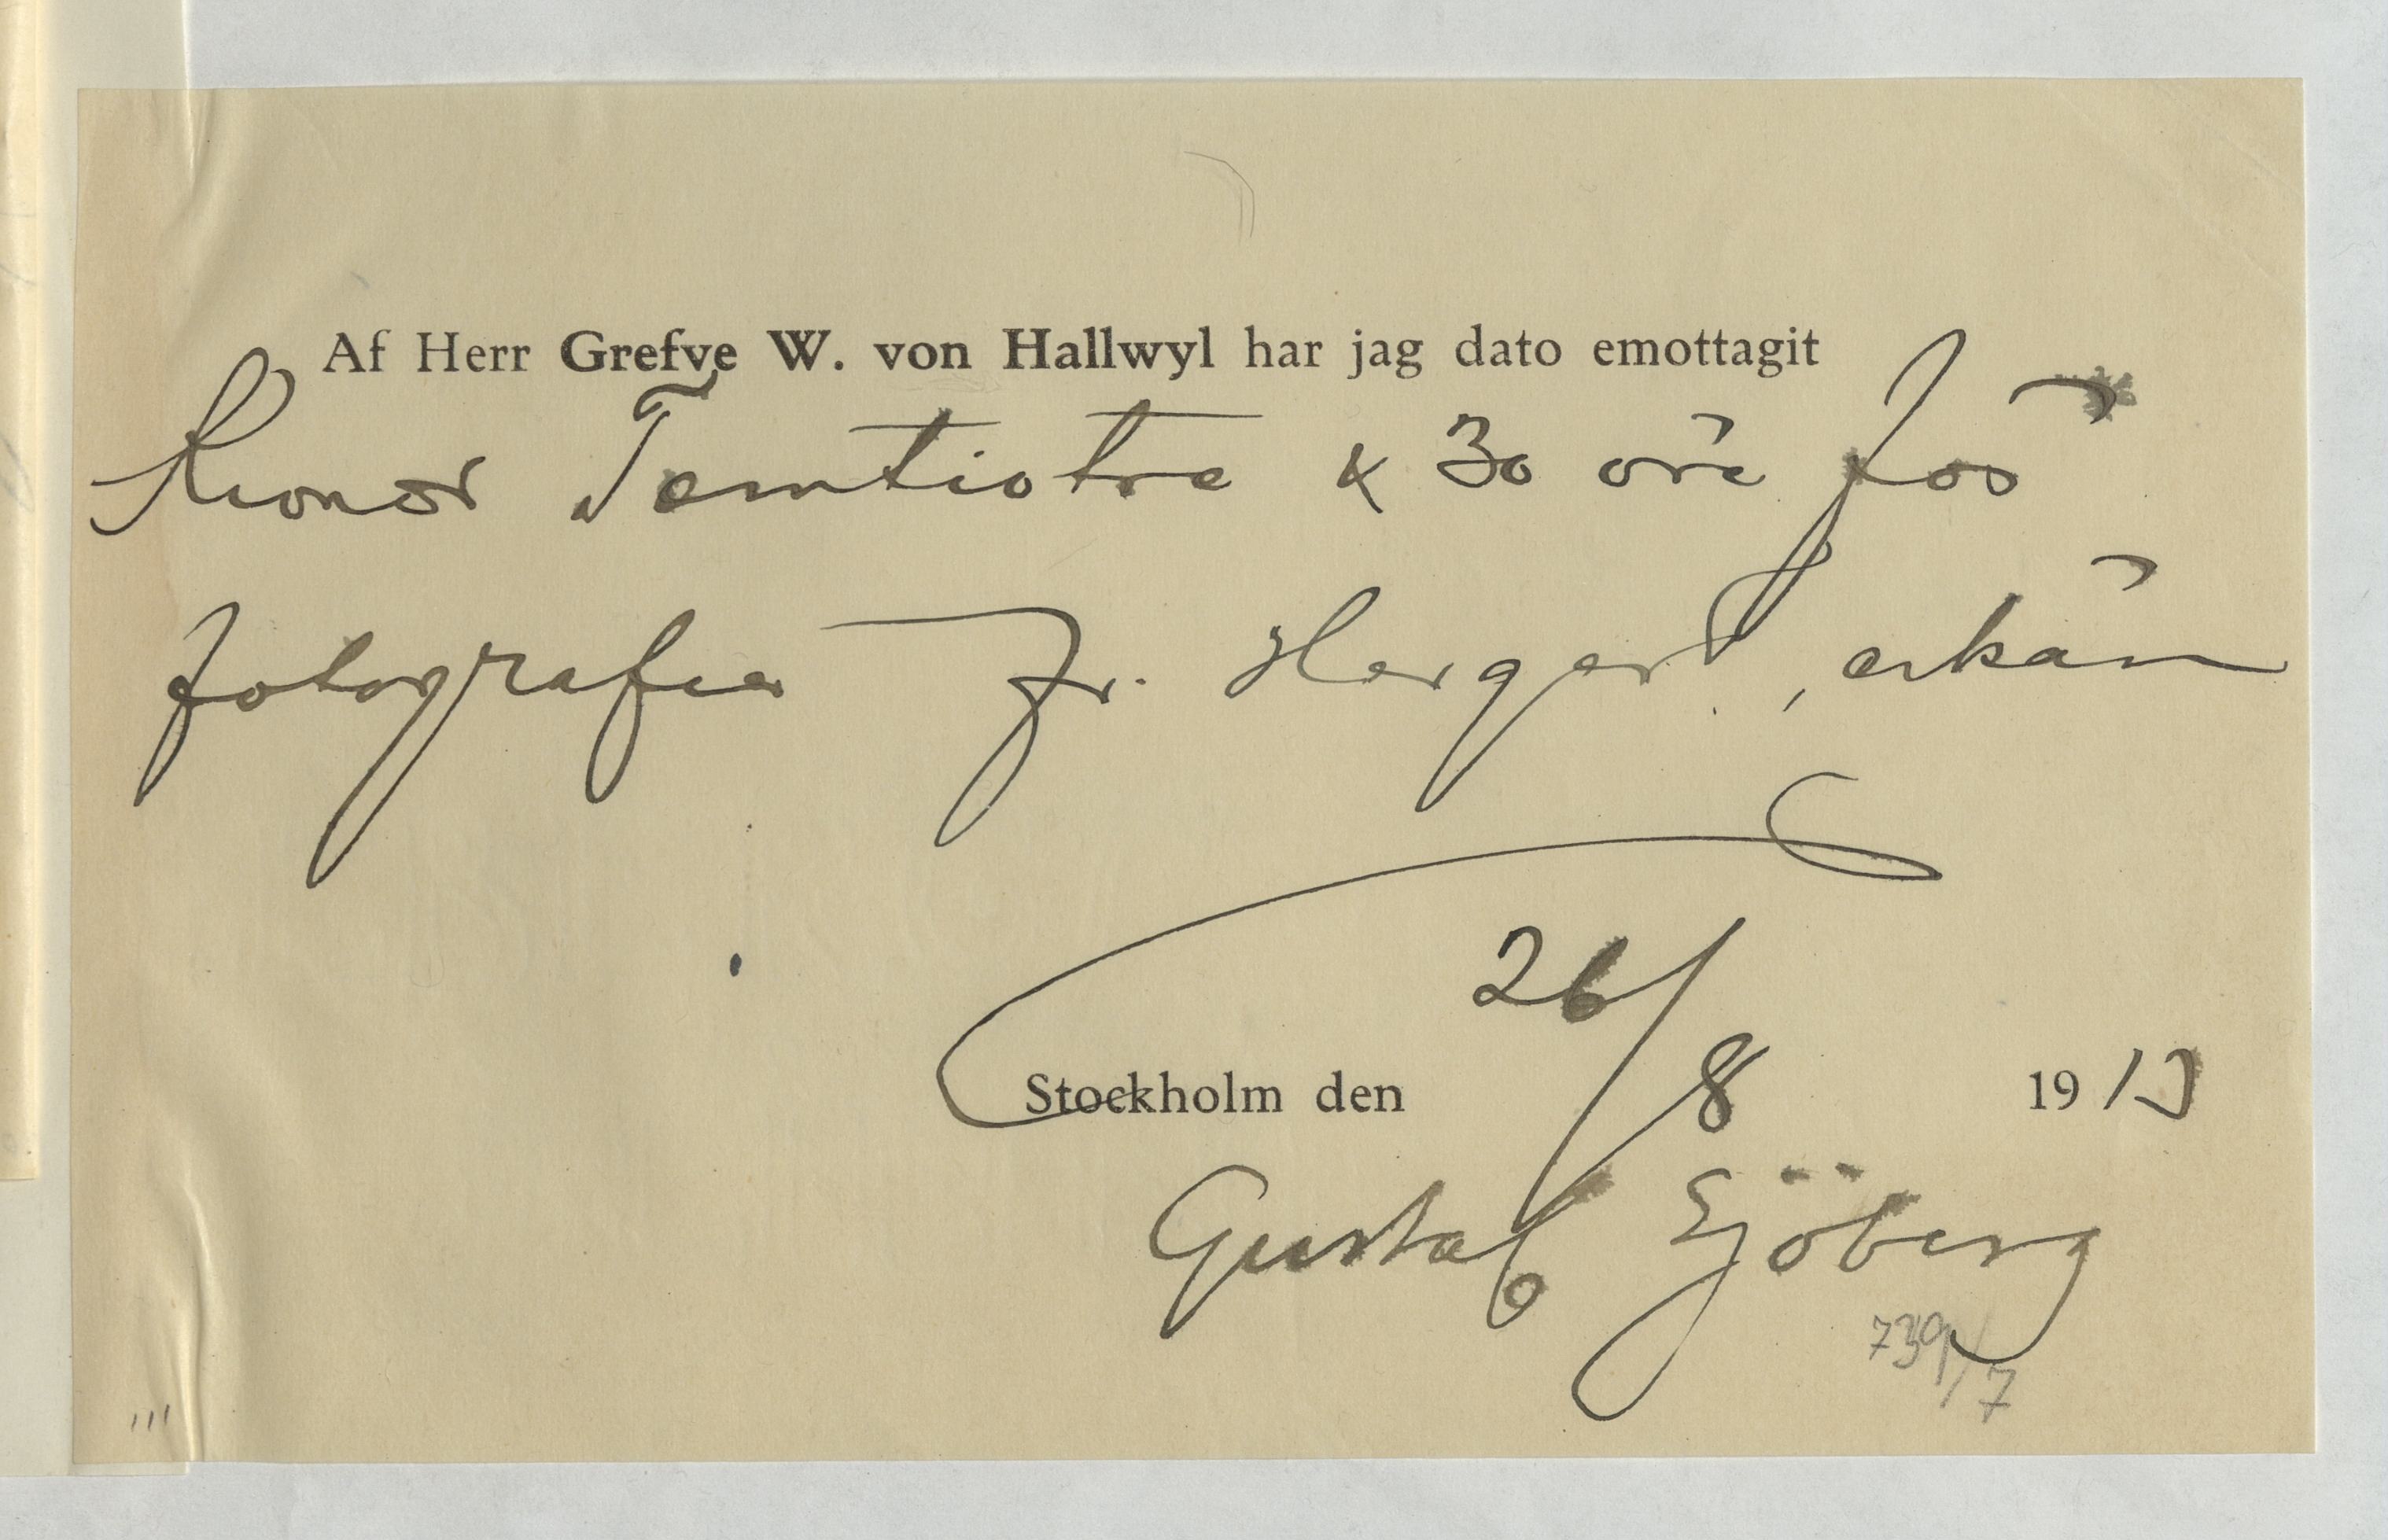 Af Herr Grefve W. von Hallwyl har jag dato emottagit
Kronor Femtiotre & 30 öre för
fotografier Fr. Hergert, erkän
26/8
Stockholm den 1913
Gustaf Sjöberg
739/7